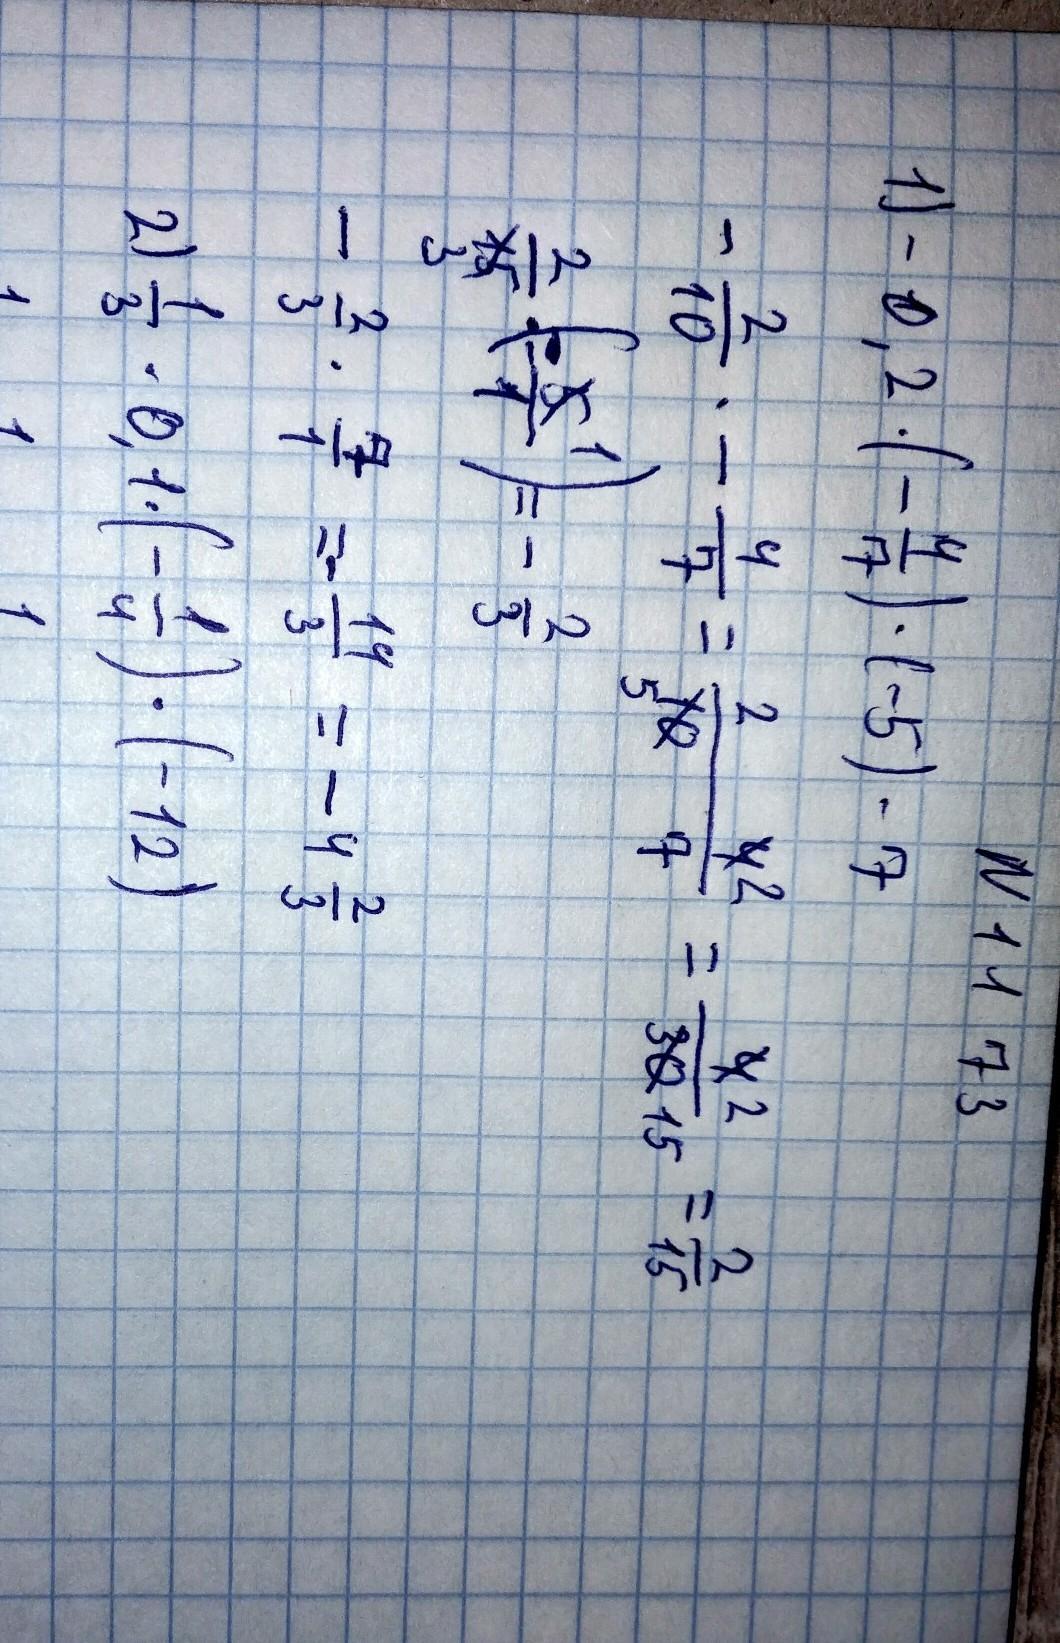 N 1173
1) -0,2·(-4/7)·(-5)·7
-2/10 · -4/7 = 2 4 2/5 10 7 = 4 2/30 15 = 2/15
2/3 15 · (-5 1/1) = -2/3
-2/3 · 7/1 = -14/3 = -4 2/3
2) 1/3 · 0,1·(-1/4)·(-12)